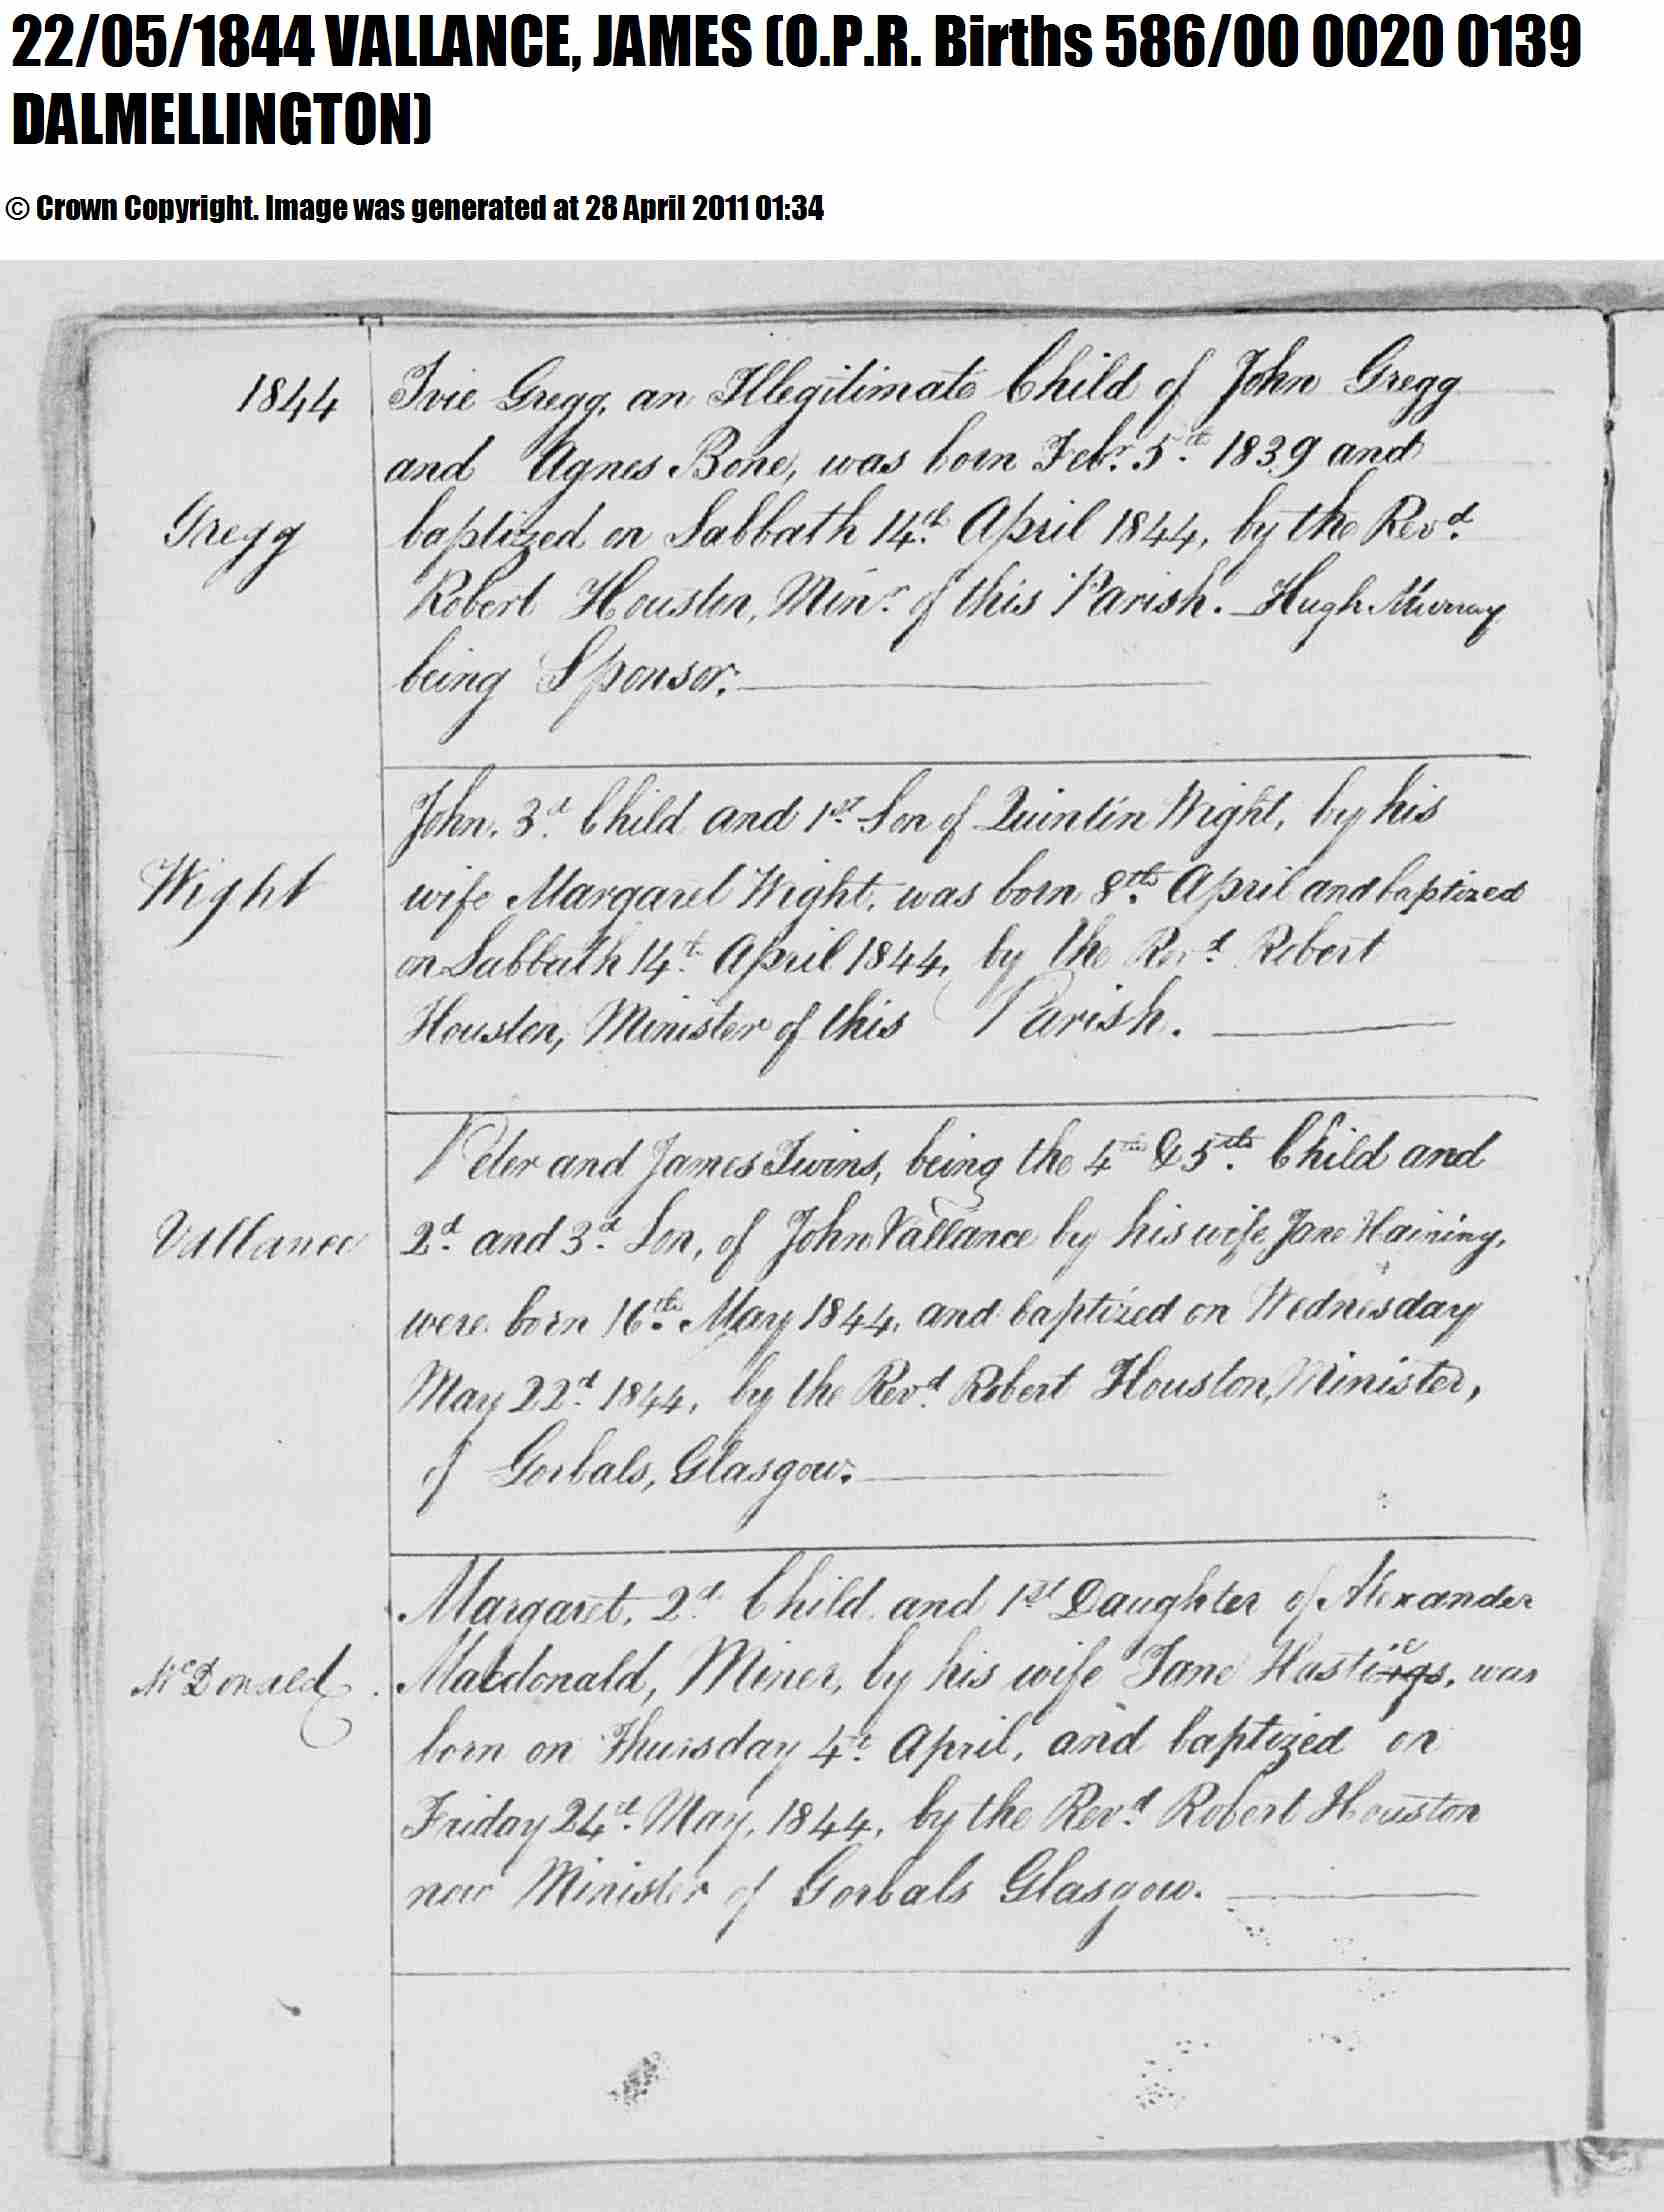 22/05/1844 VALLANCE, JAMES (O.P.R. Births 586/00 0020 0139
DALMELLINGTON)
© Crown Copyright. Image was generated at 28 April 2011 01:34
1844
Ivie Gregg, an Illegitimate Child of John Gregg
and Agnes Bone, was born Febr. 5th 1839 and
Gregg
baptized on Sabbath 14th April 1844, by the Revd.
Robert Houston, Minr. of this Parish. Hugh Murray
being Sponsor.
John, 3d. Child and 1st Son of Quintin Wight, by his
Wight
wife Margaret Wight, was born 8th April and baptized
on Sabbath 14th April 1844, by the Revd. Robert
Houston, Minister of this Parish.
Peter and James Twins, being the 4th & 5th Child and
Vallance
2d. and 3d. Son, of John Vallance by his wife Jane Haining,
were born 16th May 1844, and baptized on Wednesday
May 22d. 1844, by the Revd. Robert Houston, Minister,
of Gorbals, Glasgow.
Margaret, 2d. Child and 1st Daughter of Alexander
McDonald
Macdonald, Miner, by his wife Jane was
born on Thursday 4th April, and baptized on
Friday 24th May, 1844, by the Revd. Robert Houston
now Minister of Gorbals Glasgow.